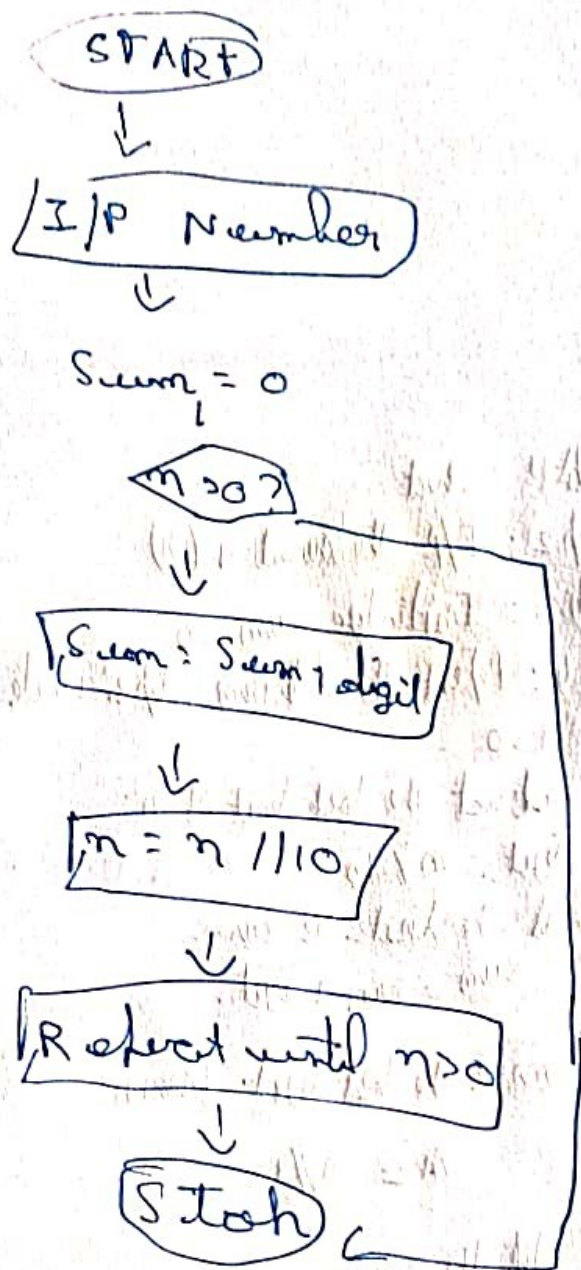 START
I/P Number
Sum = 0
n > 0 ?
Sum = Sum + digit
n = n // 10
Repeat until n > 0
Stop